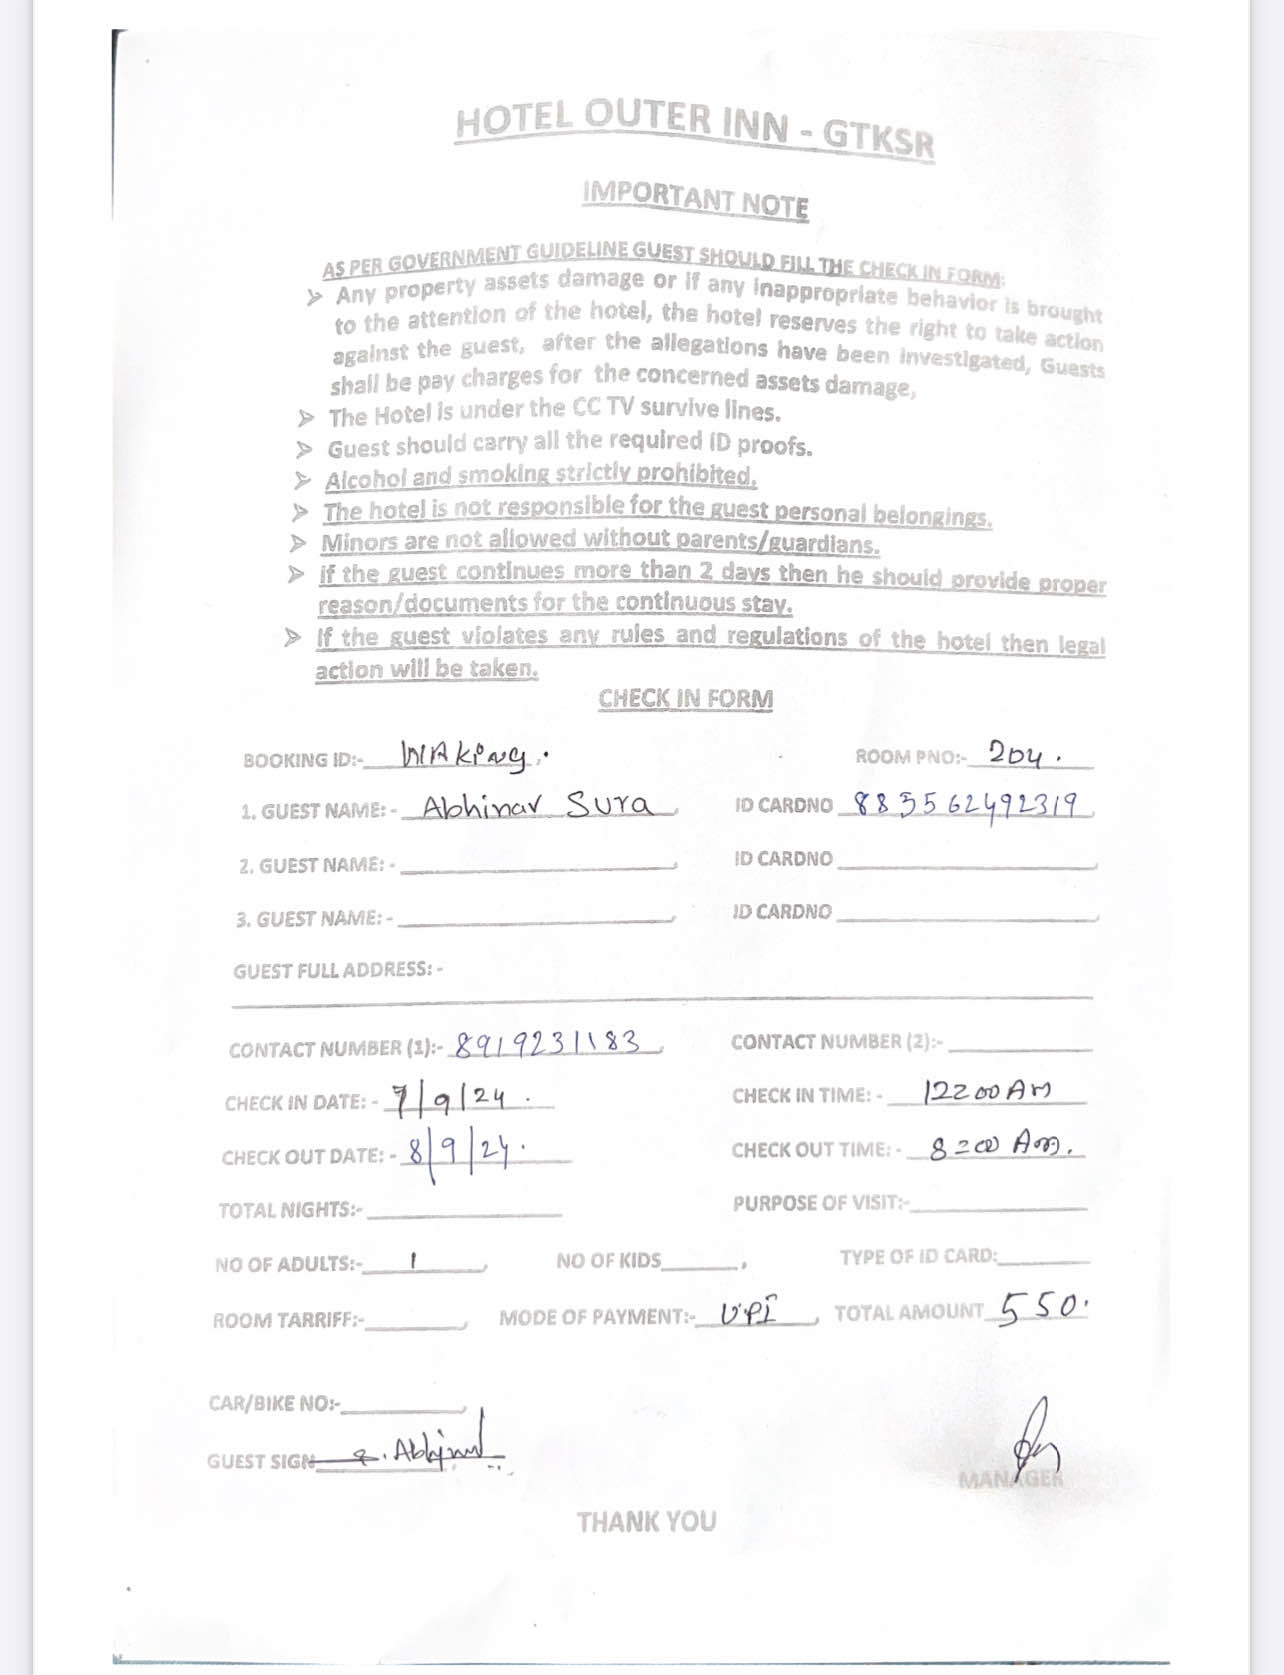 HOTEL OUTER INN - GTKSR
IMPORTANT NOTE
AS PER GOVERNMENT GUIDELINE GUEST SHOULD FILL THE CHECK IN FORM:
➢ Any property assets damage or if any inappropriate behavior is brought
to the attention of the hotel, the hotel reserves the right to take action
against the guest, after the allegations have been investigated, Guests
shall be pay charges for the concerned assets damage,
➢ The Hotel is under the CC TV survive lines.
➢ Guest should carry all the required ID proofs.
➢ Alcohol and smoking strictly prohibited.
➢ The hotel is not responsible for the guest personal belongings.
➢ Minors are not allowed without parents/guardians.
➢ if the guest continues more than 2 days then he should provide proper
reason/documents for the continuous stay.
➢ If the guest violates any rules and regulations of the hotel then legal
action will be taken.
CHECK IN FORM
BOOKING ID:- WAKing. ROOM PNO:- 204.
1. GUEST NAME: - Abhinav Sura, ID CARDNO 885562492319,
2. GUEST NAME: - , ID CARDNO ,
3. GUEST NAME: - , ID CARDNO ,
GUEST FULL ADDRESS: -
CONTACT NUMBER (1):- 8919231183, CONTACT NUMBER (2):-
CHECK IN DATE: - 7/9/24. CHECK IN TIME: - 12:00 AM
CHECK OUT DATE: - 8/9/24. CHECK OUT TIME: - 8:00 Am.
TOTAL NIGHTS:- PURPOSE OF VISIT:-
NO OF ADULTS:- 1, NO OF KIDS , TYPE OF ID CARD:
ROOM TARRIFF:- , MODE OF PAYMENT:- UPI, TOTAL AMOUNT 550.
CAR/BIKE NO:- ,
GUEST SIGN S. Abhinav
MANAGER
THANK YOU